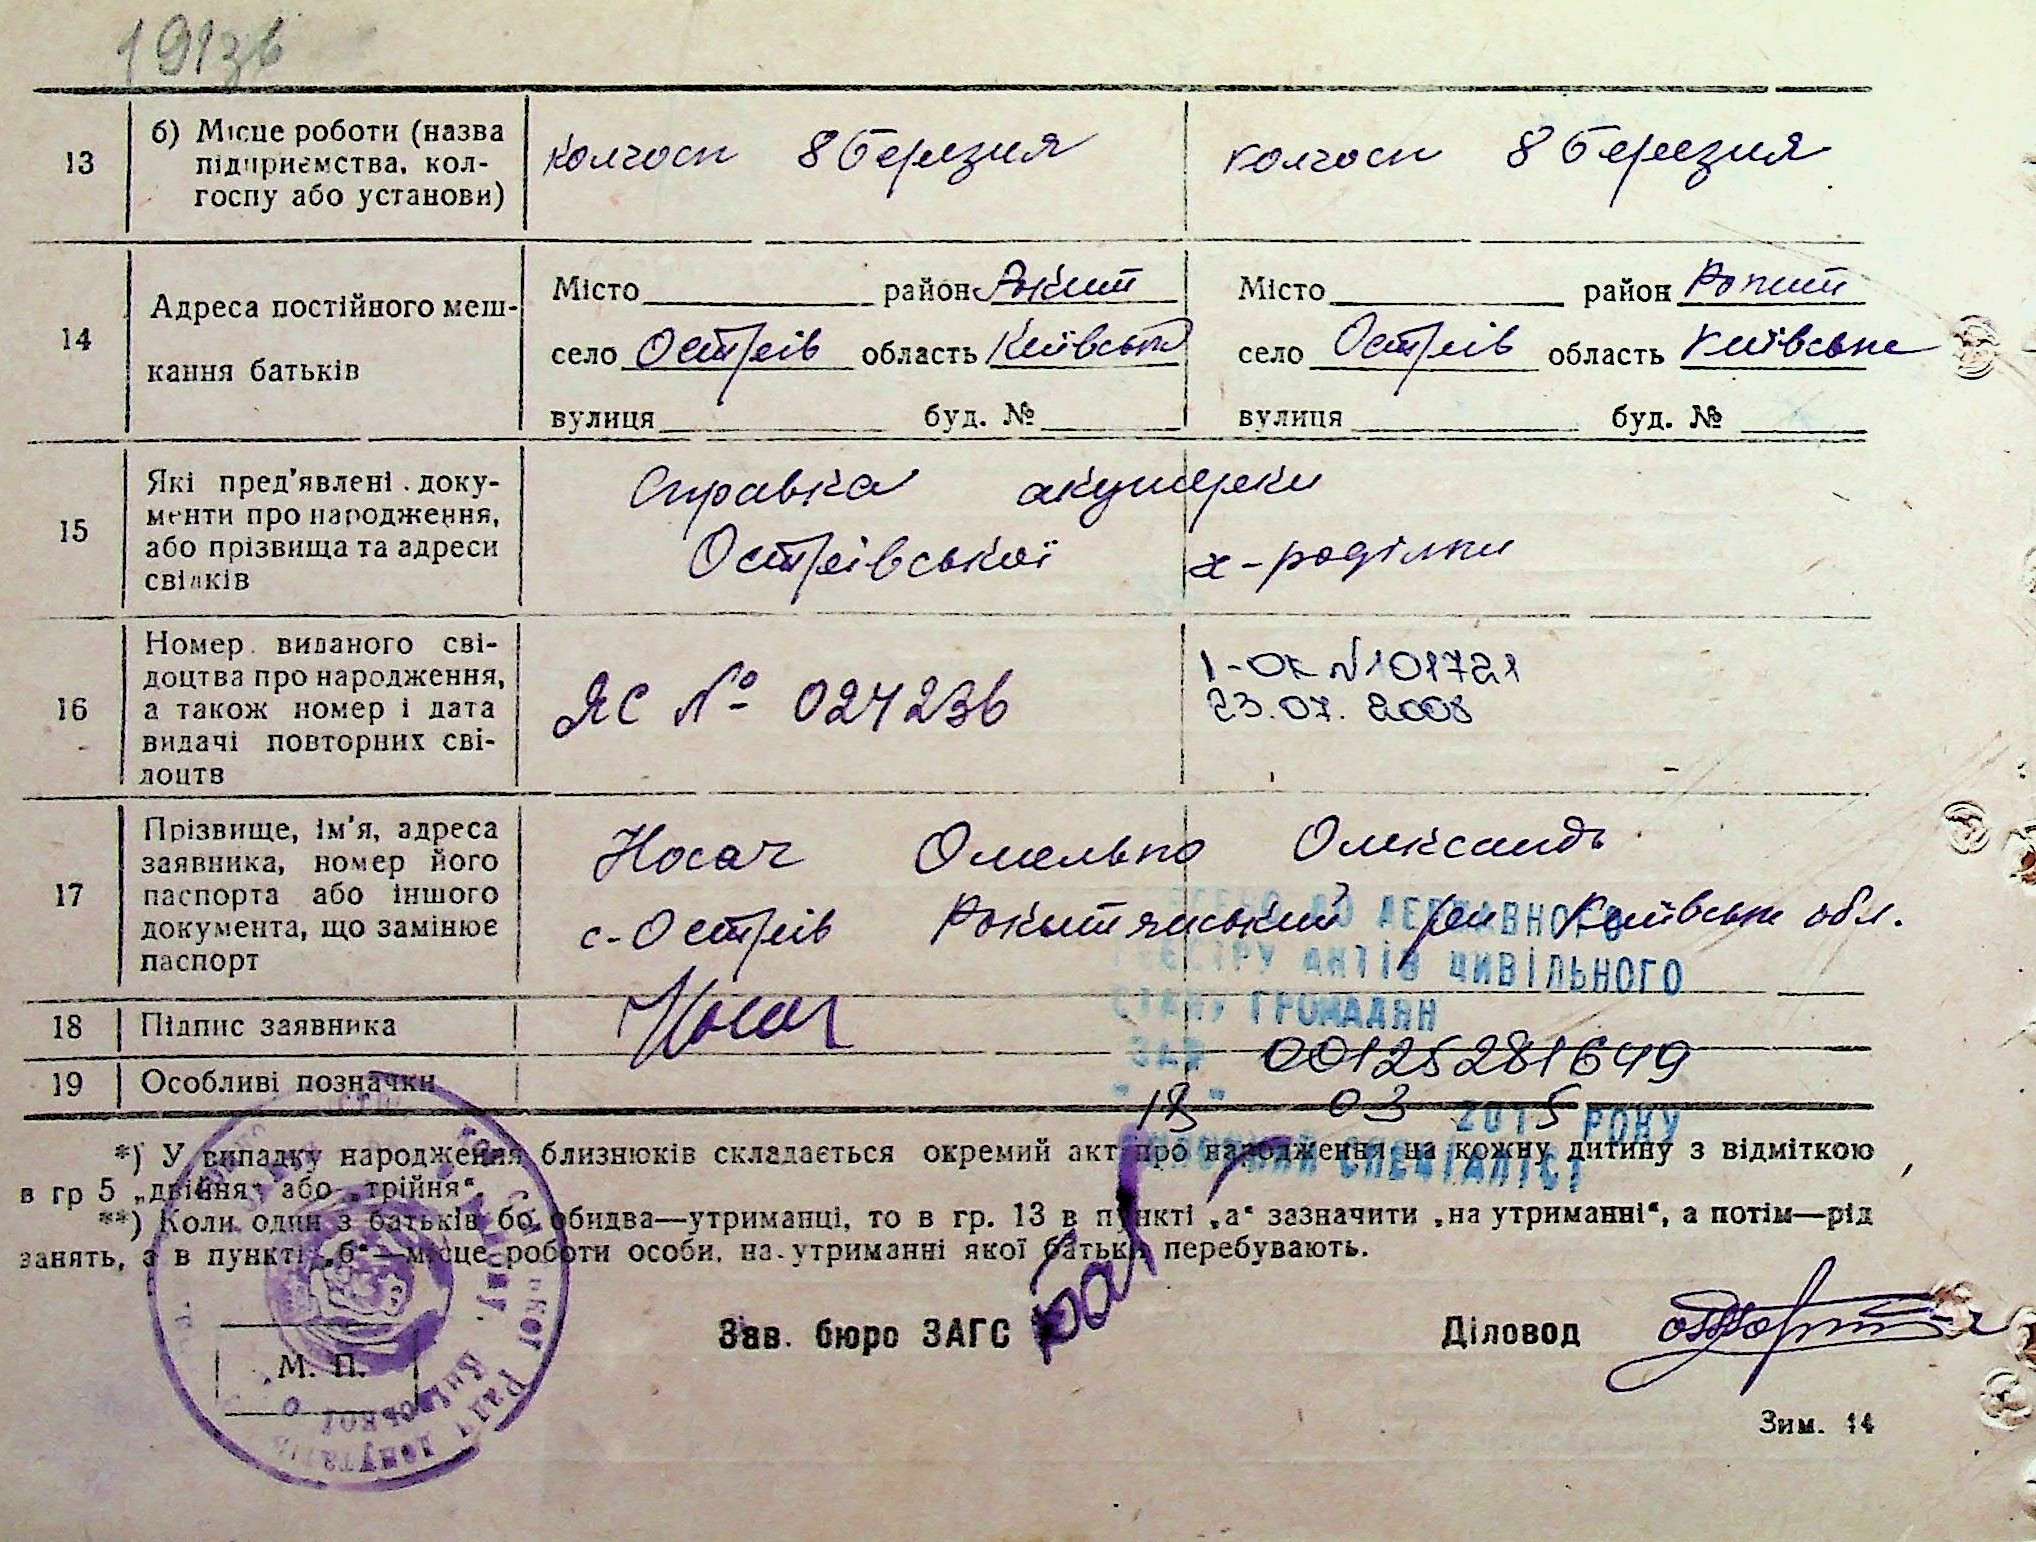 191зв
13
б) Місце роботи (назва
підприємства, кол-
госпу або установи)
колгосп 8 Березня
колгосп 8 Березня
14
Адреса постійного меш-
кання батьків
Місто район Рокит
село Острів область Київська
вулиця буд. №
Місто район Рокит
село Острів область Київська
вулиця буд. №
15
Які пред'явлені доку-
менти про народження,
або прізвища та адреси
свідків
Справка акушерки
Острівської к-роділки
16
Номер виданого сві-
доцтва про народження,
а також номер і дата
видачі повторних сві-
доцтв
ЯС № 024236
1-ОК №101721
23.07.2008
17
Прізвище, ім'я, адреса
заявника, номер його
паспорта або іншого
документа, що замінює
паспорт
Носач Омелько Олександ
с-Острів Рокитянський р-н Київська обл.
18
Підпис заявника
Носач
19
Особливі позначки
ДО ДЕРЖАВНОГО
РЕЄСТРУ АКТІВ ЦИВІЛЬНОГО
СТАНУ ГРОМАДЯН
ЗА № 00125281649
18 03 2015 РОКУ
СПЕЦІАЛІСТ
*) У випадку народження близнюків складається окремий акт про народження на кожну дитину з відміткою
в гр 5 „двійня“ або „трійня“.
**) Коли один з батьків бо обидва—утриманці, то в гр. 13 в пункті „а“ зазначити „на утриманні“, а потім—рід
занять, а в пункті „б“—місце роботи особи, на утриманні якої батьки перебувають.
М. П.
Зав. бюро ЗАГС
Діловод
Зим. 14